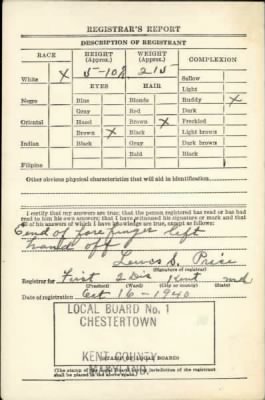 REGISTRAR'S REPORT
DESCRIPTION OF REGISTRANT
RACE HEIGHT (Approx.) WEIGHT (Approx.) COMPLEXION
White X 5-10½ 215 Sallow
EYES HAIR Light
Negro Blue Blonde Ruddy X
Gray Red Dark
Oriental Hazel Brown X Freckled
Brown X Black Light brown
Indian Black Gray Dark brown
Bald Black
Filipino
Other obvious physical characteristics that will aid in identification
I certify that my answers are true; that the person registered has read or has had
read to him his own answers; that I have witnessed his signature or mark and that
all of his answers of which I have knowledge are true, except as follows:
end of fore finger left
hand off
Lewis S. Price
(Signature of registrar)
Registrar for First 2 Dis Kent md
(Precinct) (Ward) (City or county) (State)
Date of registration Oct 16-1940
LOCAL BOARD No. 1
CHESTERTOWN
KENT COUNTY
MARYLAND
(STAMP OF LOCAL BOARD)
(The stamp of the Local Board having jurisdiction of the registrant
shall be placed in the above space.)